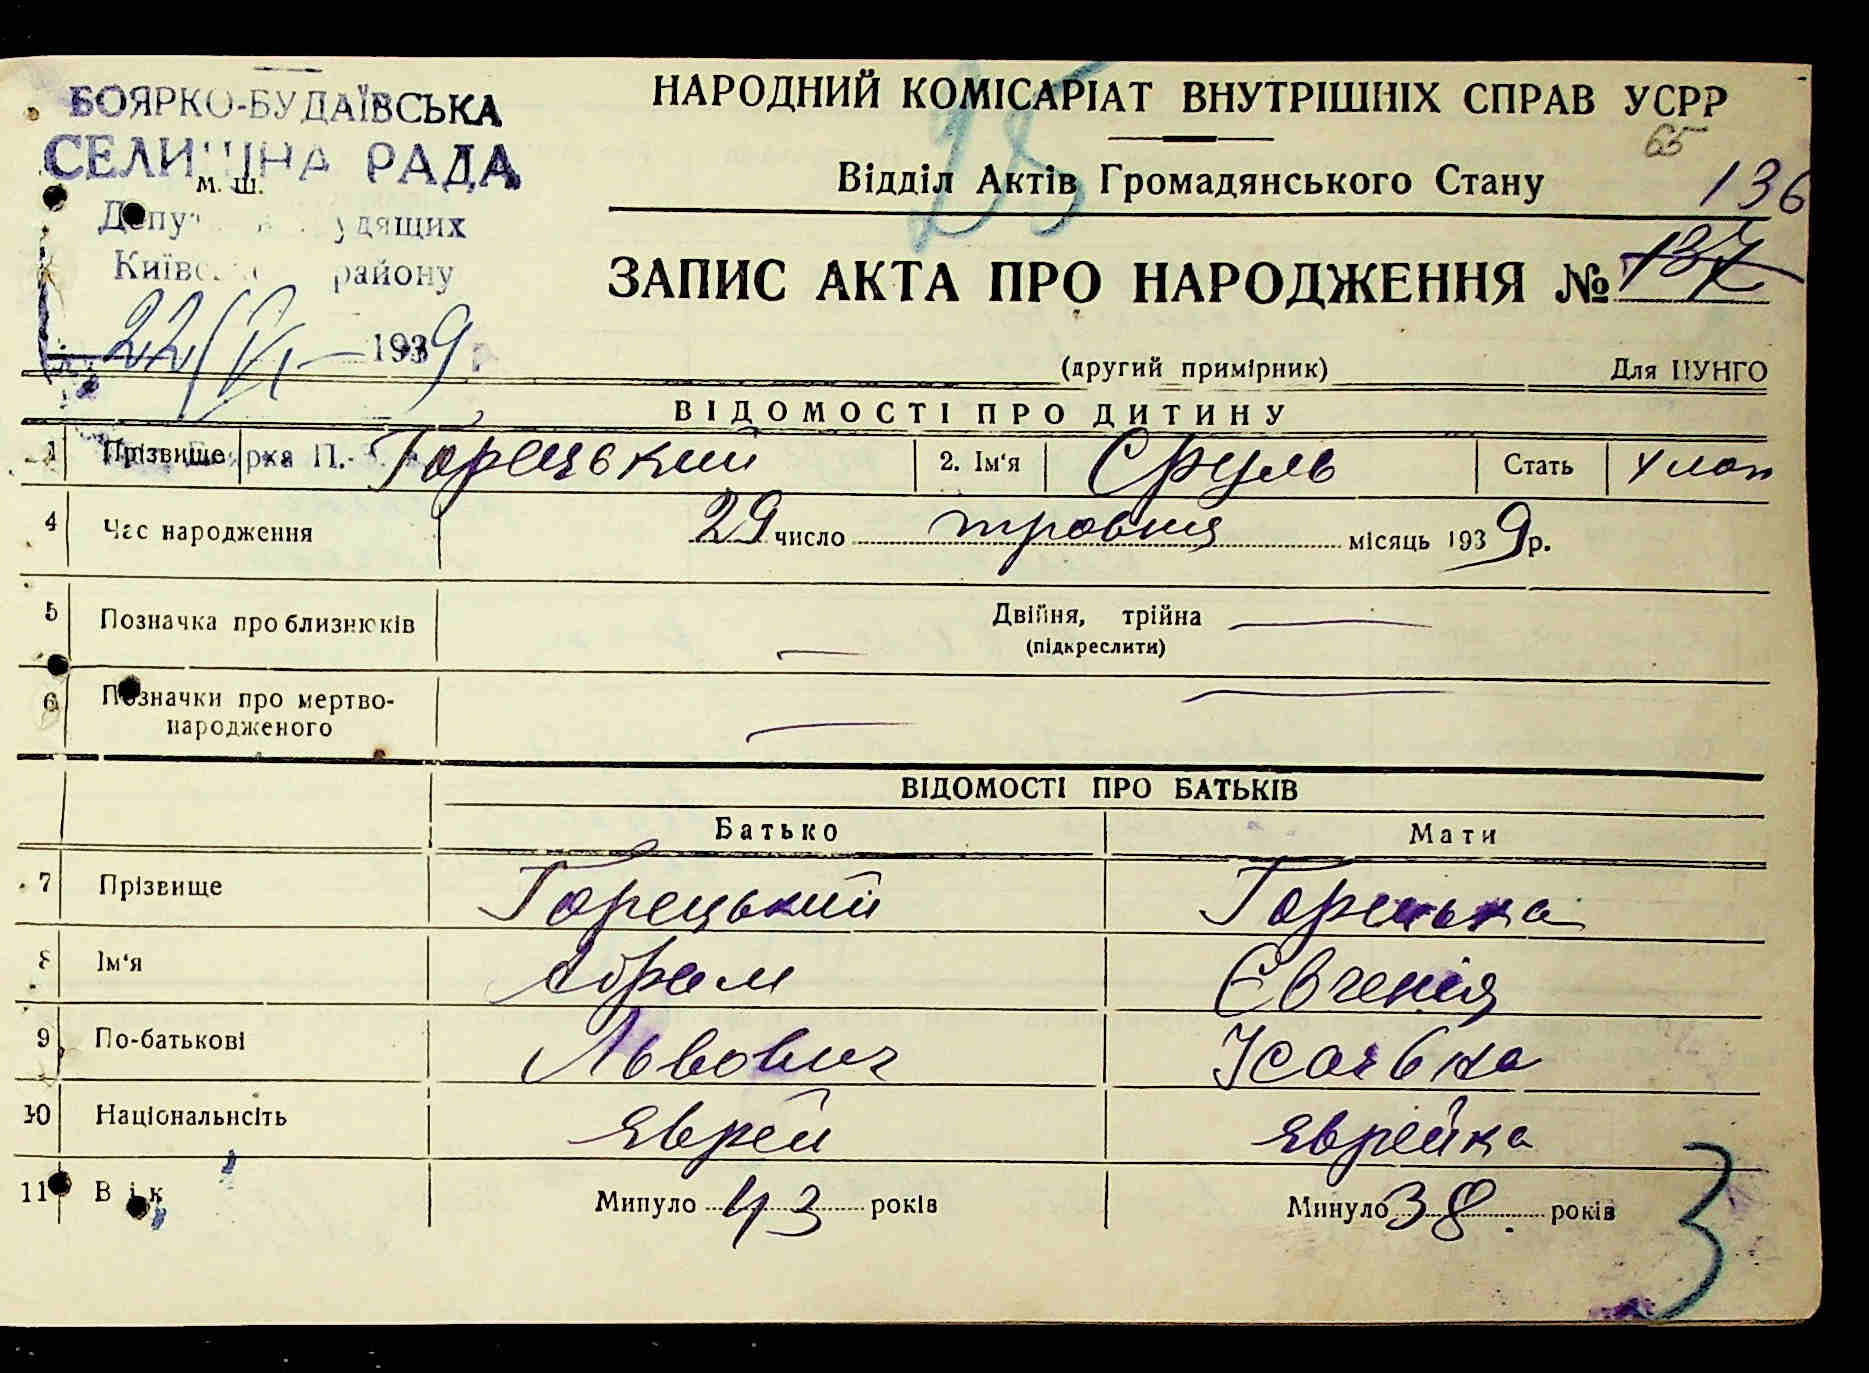 БОЯРКО-БУДАЇВСЬКА
СЕЛИЩНА РАДА
м. ш.
Київс району
22/VI - 1939 р
НАРОДНИЙ КОМІСАРІАТ ВНУТРІШНІХ СПРАВ УСРР
25
65
Відділ Актів Громадянського Стану
136
ЗАПИС АКТА ПРО НАРОДЖЕННЯ № 137
(другий примірник) Для ЦУНГО
ВІДОМОСТІ ПРО ДИТИНУ
1 Прізвище Горецький 2. Ім'я Сруль Стать
4 Час народження 29 число травня місяць 1939 р.
5 Позначка про близнюків Двійня, трійна
(підкреслити)
6 Позначки про мертво-
народженого
ВІДОМОСТІ ПРО БАТЬКІВ
Батько Мати
7 Прізвище Горецький Горецька
8 Ім'я Абрам Євгенія
9 По-батькові Львович
10 Національнсіть Яврей Яврейка
11 Вік Минуло 43 років Минуло 38 років
3